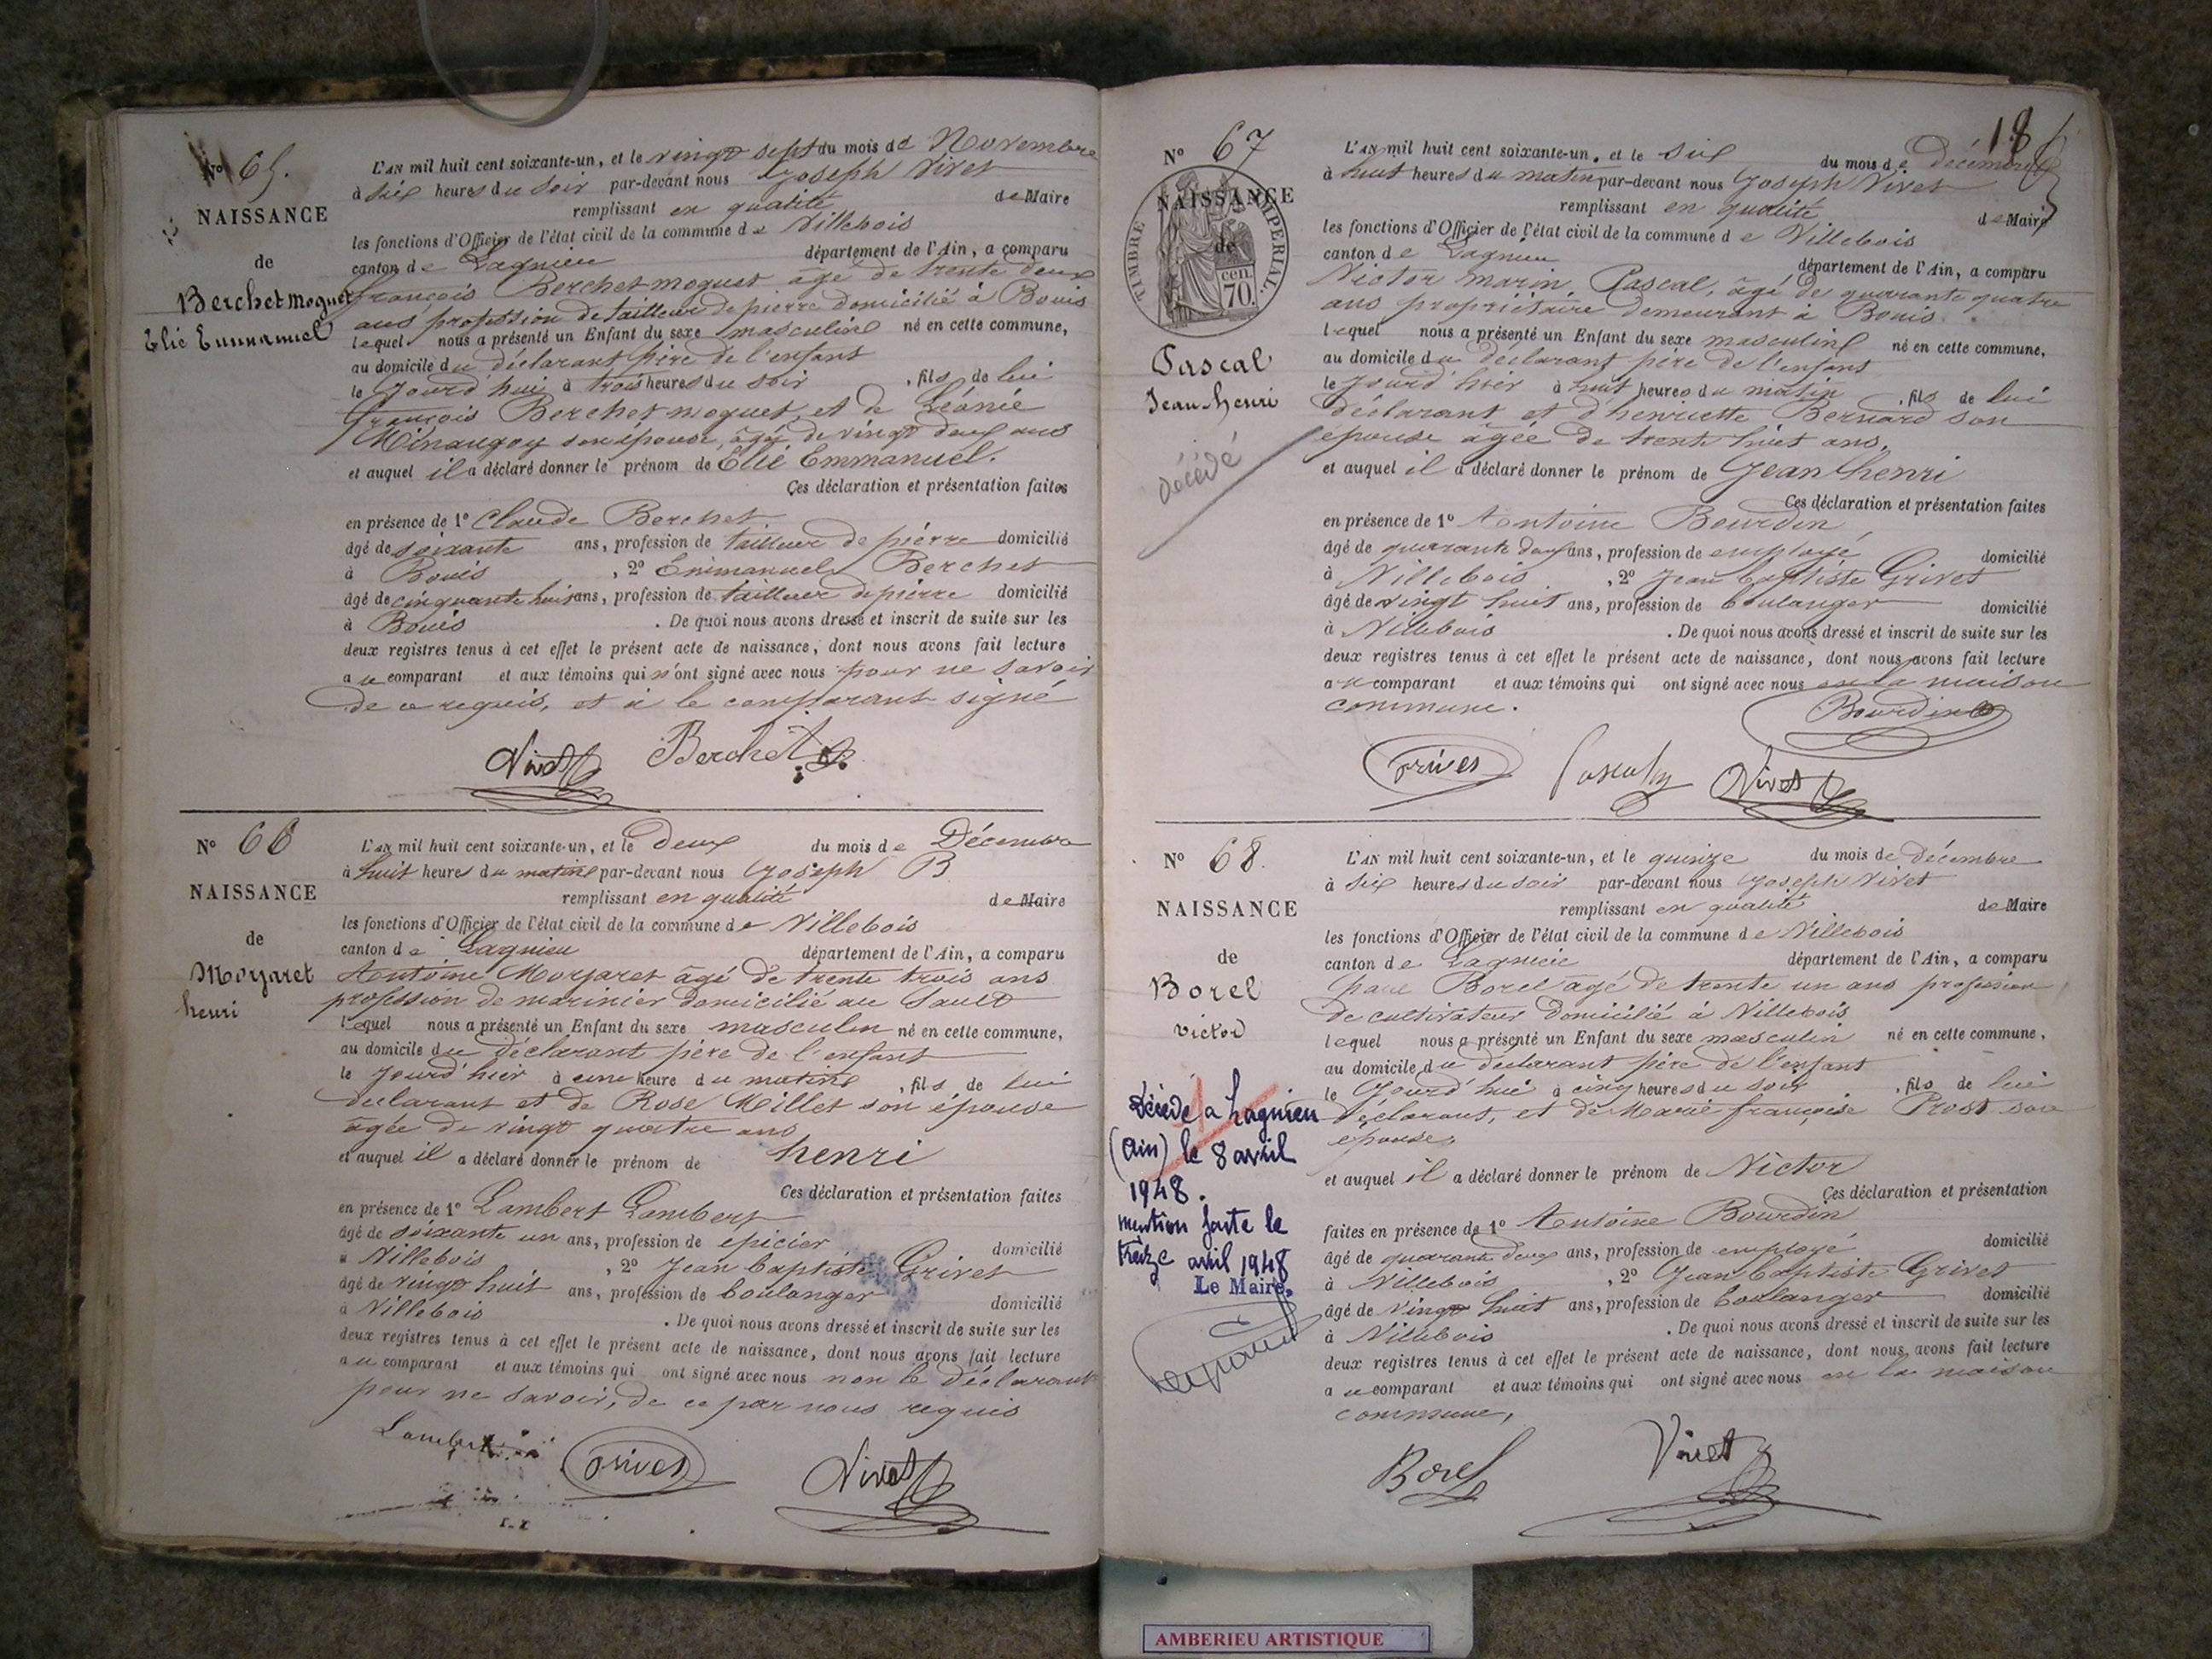 N° 65.
NAISSANCE
de
Berchet moguet
Elié Emmanuel
L'AN mil huit cent soixante-un, et le vingt sept du mois de Novembre
à six heures du soir par-devant nous Joseph Vivet
remplissant en qualité de Maire
les fonctions d'Officier de l'état civil de la commune de Villebois
canton de Lagnieu département de l'Ain, a comparu
françois Berchet moguet âgé de trente deux
ans profession de tailleur de pierre domicilié à Bouis
lequel nous a présenté un Enfant du sexe masculin né en cette commune,
au domicile du déclarant père de l'enfant
le Jourd'hui à trois heures du soir , fils de lui
françois Berchet moguet, et de Léonie
son épouse, âgée de vingt deux ans
et auquel il a déclaré donner le prénom de Elié Emmanuel.
Ces déclaration et présentation faites
en présence de 1° Claude Berchet
âgé de soixante ans, profession de tailleur de pierre domicilié
à Bouis , 2° Emmanuel Berchet
âgé de cinquante huit ans, profession de tailleur de pierre domicilié
à Bouis . De quoi nous avons dressé et inscrit de suite sur les
deux registres tenus à cet effet le présent acte de naissance, dont nous avons fait lecture
au comparant et aux témoins qui n'ont signé avec nous pour ne savoir
de ce requis, et à le comparant signé
Vivet Berchet
N° 66
NAISSANCE
de
Moyaret
henri
L'AN mil huit cent soixante-un, et le deux du mois de Décembre
à huit heures du matin par-devant nous Joseph B
remplissant en qualité de Maire
les fonctions d'Officier de l'état civil de la commune de Villebois
canton de Lagnieu département de l'Ain, a comparu
Antoine Moyaret âgé de trente trois ans
profession de marinier domicilié au Sault
lequel nous a présenté un Enfant du sexe masculin né en cette commune,
au domicile du déclarant père de l'enfant
le Jourd'hier à une heure du matin , fils de lui
déclarant et de Rose Millet son épouse
âgée de vingt quatre ans
et auquel il a déclaré donner le prénom de henri
Ces déclaration et présentation faites
en présence de 1° Lambert Lambert
âgé de soixante un ans, profession de épicier domicilié
à Villebois , 2° Jean baptiste Grivet
âgé de vingt huit ans, profession de boulanger domicilié
à Villebois . De quoi nous avons dressé et inscrit de suite sur les
deux registres tenus à cet effet le présent acte de naissance, dont nous avons fait lecture
au comparant et aux témoins qui ont signé avec nous non le déclarant
pour ne savoir, de ce par nous requis
Lambert Grivet Vivet
18
N° 67
NAISSANCE
de
TIMBRE IMPERIAL.
70 cen.
Pascal
Jean henri
décédé
L'AN mil huit cent soixante-un, et le six du mois de décembre
à huit heures du matin par-devant nous Joseph Vivet
remplissant en qualité de Maire
les fonctions d'Officier de l'état civil de la commune de Villebois
canton de Lagnieu département de l'Ain, a comparu
Victor marin Pascal, âgé de quarante quatre
ans propriétaire demeurant à Bouis.
lequel nous a présenté un Enfant du sexe masculin né en cette commune,
au domicile du déclarant père de l'enfant
le Jourd'hier à huit heures du matin , fils de lui
déclarant et d'henriette Bernard son
épouse âgée de trente huit ans,
et auquel il a déclaré donner le prénom de Jean henri
Ces déclaration et présentation faites
en présence de 1° Antoine Bourdin
âgé de quarante deux ans, profession de employé domicilié
à Villebois , 2° Jean baptiste Grivet
âgé de vingt huit ans, profession de boulanger domicilié
à Villebois . De quoi nous avons dressé et inscrit de suite sur les
deux registres tenus à cet effet le présent acte de naissance, dont nous avons fait lecture
au comparant et aux témoins qui ont signé avec nous en la maison
commune.
Bourdin
Grivet Pascal Vivet
N° 68.
NAISSANCE
de
Borel
victor
Décédé à Lagnieu
(Ain) le 8 avril
1948.
mention faite le
treize avril 1948
Le Maire,
L'AN mil huit cent soixante-un, et le quinze du mois de décembre
à six heures du soir par-devant nous Joseph Vivet
remplissant en qualité de Maire
les fonctions d'Officier de l'état civil de la commune de Villebois
canton de Lagnieu département de l'Ain, a comparu
paul Borel âgé de trente un ans profession
de cultivateur domicilié à Villebois
lequel nous a présenté un Enfant du sexe masculin né en cette commune,
au domicile du déclarant père de l'enfant
le Jourd'hui à cinq heures du soir , fils de lui
déclarant, et de Marie françoise Prost son
épouse,
et auquel il a déclaré donner le prénom de Victor
Ces déclaration et présentation
faites en présence de 1° Antoine Bourdin
âgé de quarante deux ans, profession de employé domicilié
à Villebois , 2° Jean baptiste Grivet
âgé de vingt huit ans, profession de boulanger domicilié
à Villebois . De quoi nous avons dressé et inscrit de suite sur les
deux registres tenus à cet effet le présent acte de naissance, dont nous avons fait lecture
au comparant et aux témoins qui ont signé avec nous en la maison
commune,
Borel Vivet
AMBERIEU ARTISTIQUE